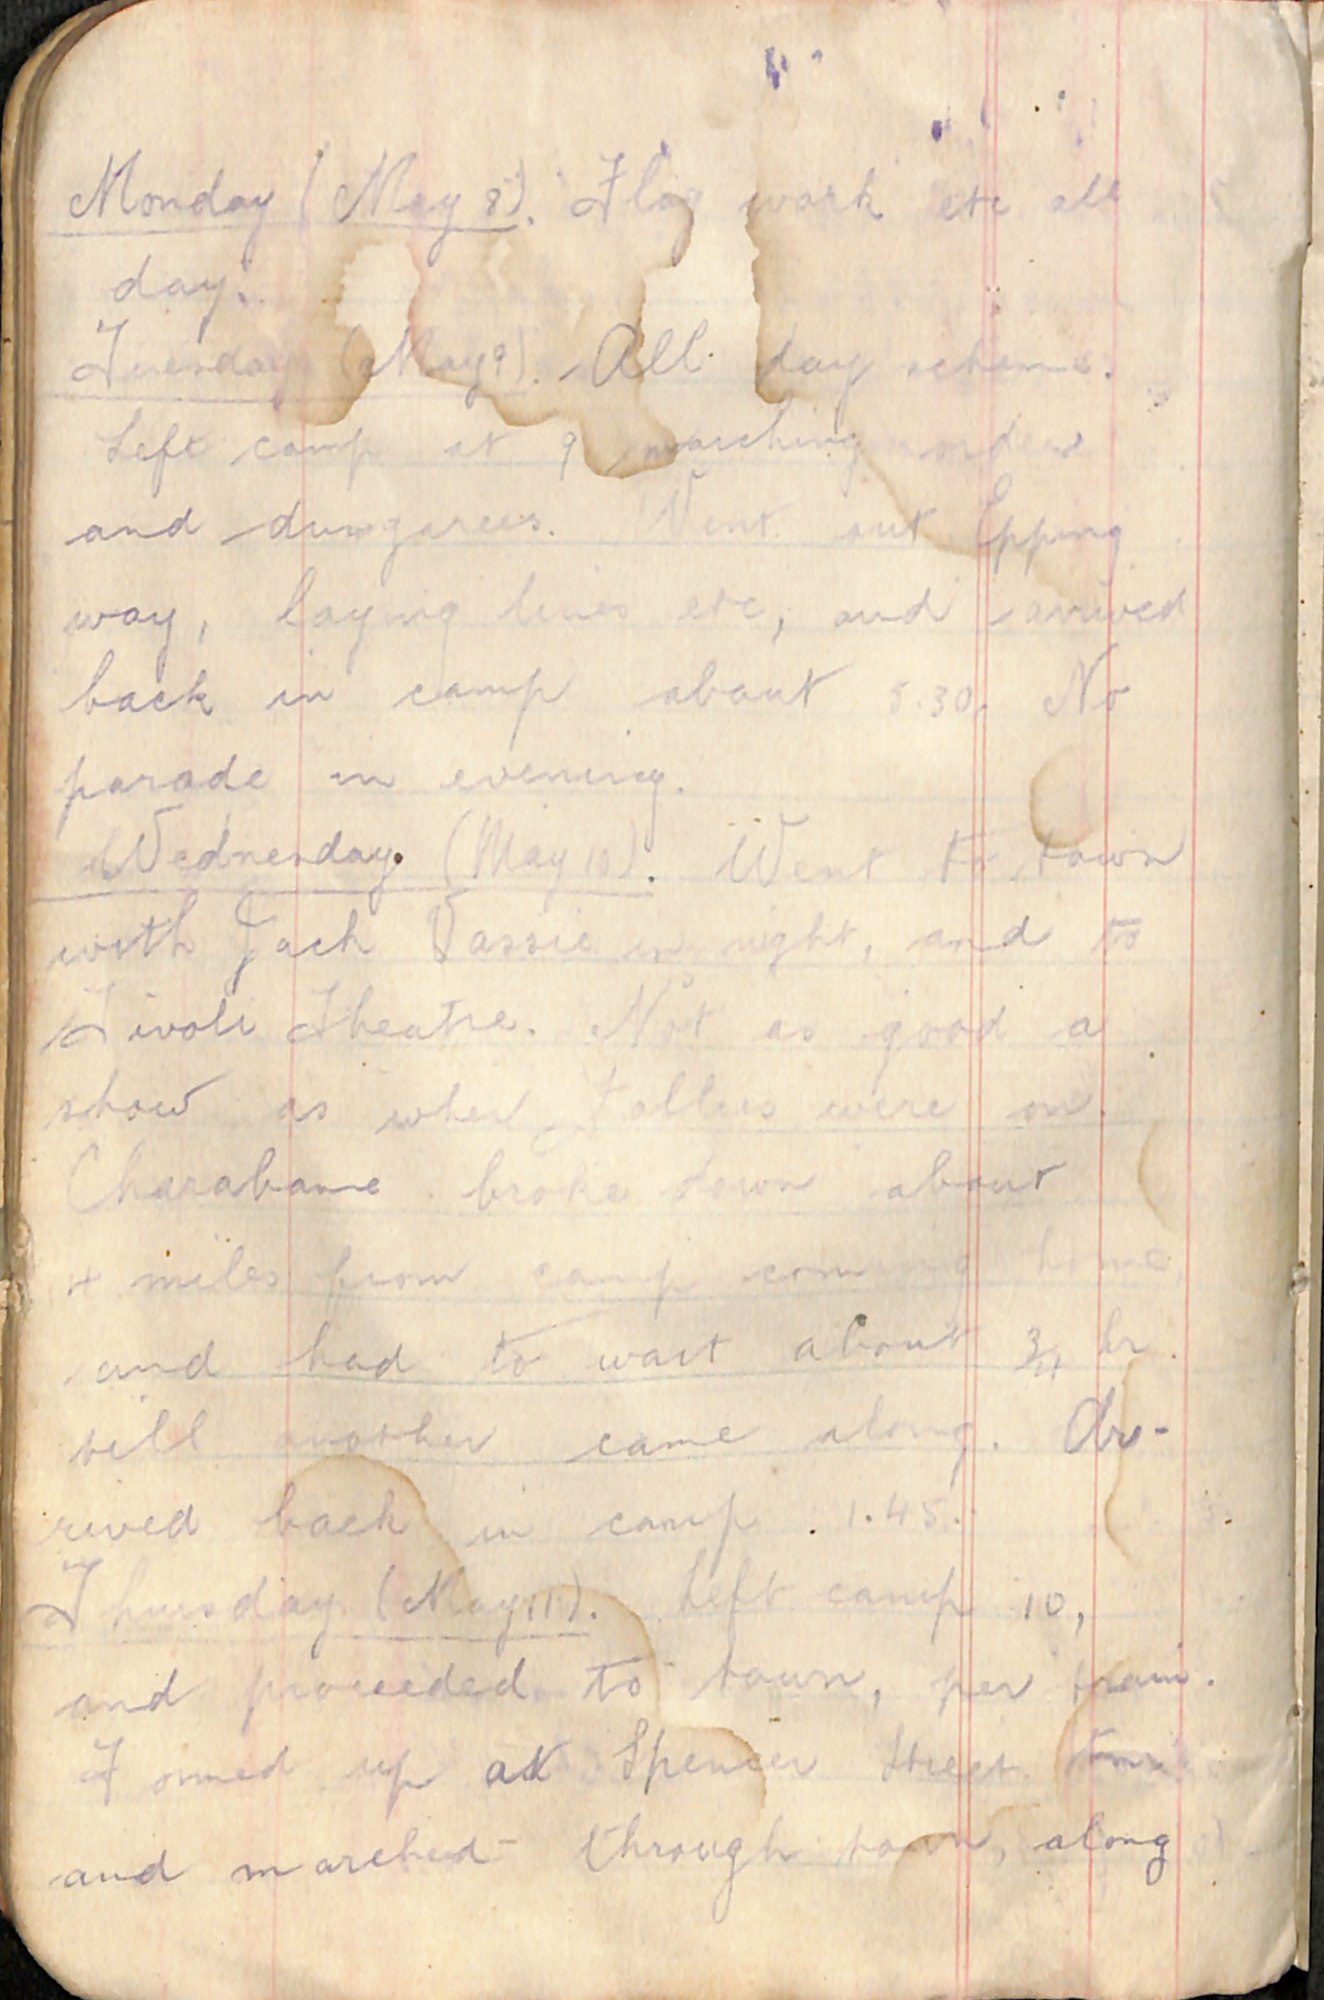 Monday (May 8). Flag work etc all
day.
Tuesday (May 9). All day scheme.
Left camp at 9 marching order
and dungarees. Went out Epping
way, laying lines etc, and arrived
back in camp about 5.30. No
parade in evening.
Wednesday. (May 10). Went to town
with Jack Vassie in night, and to
Tivoli Theatre. Not as good a
show as when Follies were on.
Charabanc broke down about
4 miles from camp coming home,
and had to wait about 3/4 hr.
till another came along. Ar-
rived back in camp 1.45.
Thursday (May 11). Left camp 10,
and proceeded to town, per train.
Formed up at Spencer Street
and marched through town, along